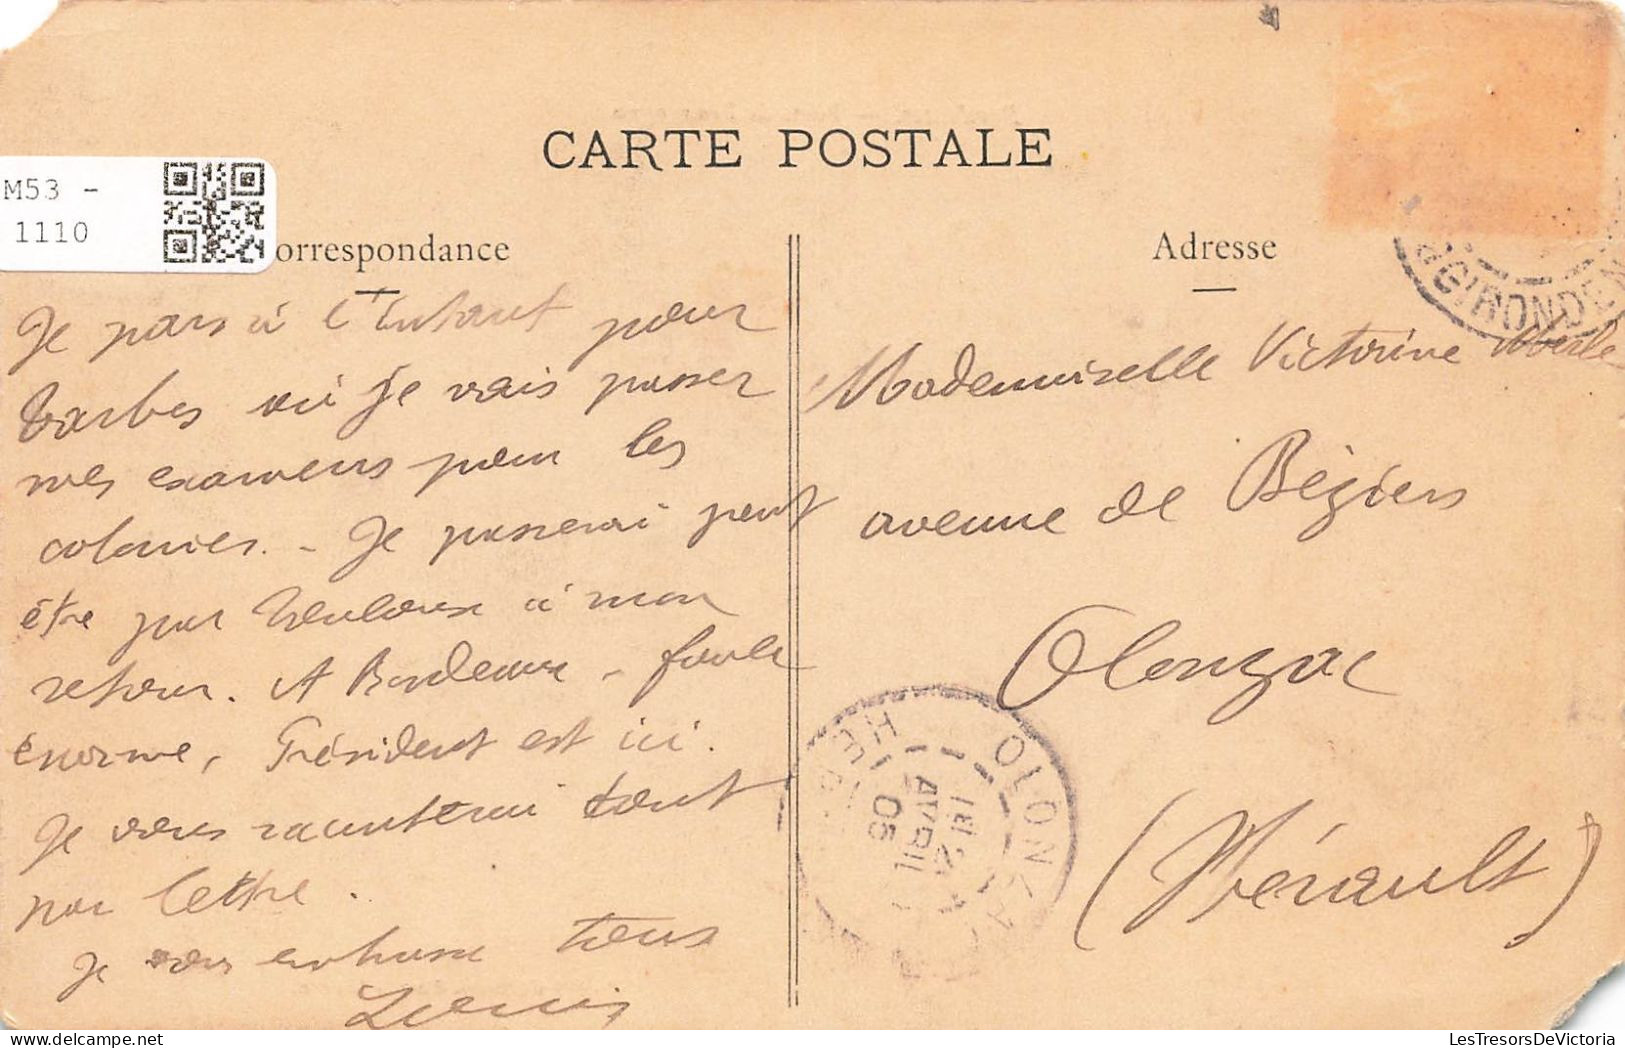 CARTE POSTALE
M53 -
1110
orrespondance
Adresse
Je pars à l'instant pour
Tarbes où je vais passer
mes examens pour les
colonies. - Je passerai peut
être par Toulouse à mon
retour. A Bordeaux - foule
énorme, Président est ici.
Je vous raconterai tout
par lettre.
Je vous embrasse tous
Louis
Mademoiselle Victorine
avenue de Béziers
Olonzac
(Hérault)
GIRONDE
OLONZAC
AVRIL
05
LesTresorsDeVictoria